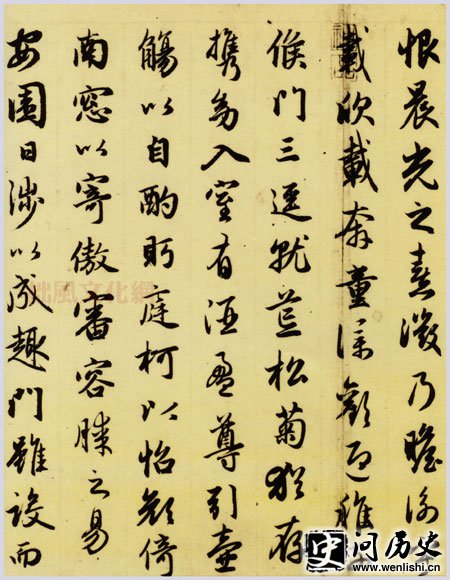 恨晨光之熹微乃瞻衡
載欣載奔童僕歡迎稚
候門三逕就荒松菊猶存
携幼入室有酒盈尊引壺
觴以自酌眄庭柯以怡顏倚
南窓以寄傲審容膝之易
安園日涉以成趣門雖設而
拙風文化網
史问历史
www.wenlishi.cn